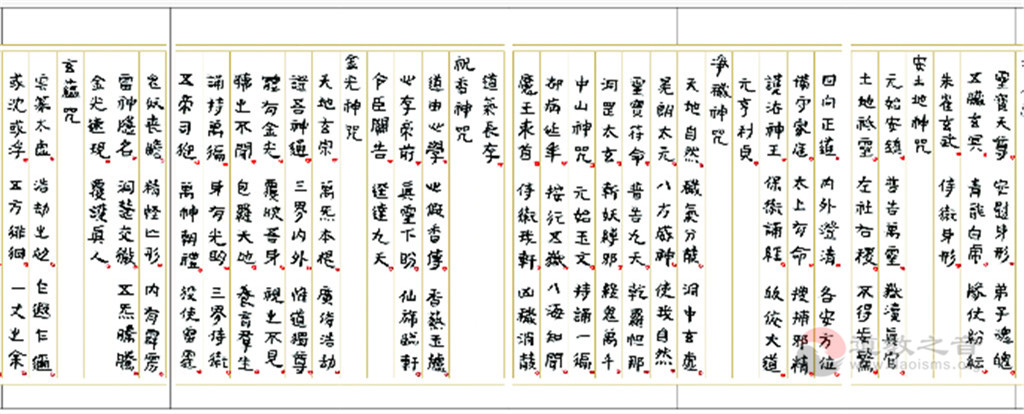 靈寶天尊 安慰身形 弟子魂魄
五臟玄冥 青龍白虎 隊仗紛紜
朱雀玄武 侍衛身形
安土地神咒
元始安鎮 普告萬靈 嶽瀆真官
土地祇靈 左社右稷 不得妄驚
回向正道 內外澄清 各安方位
備守家庭 太上有命 搜捕邪精
護法神王 保衛誦經 皈依大道
元亨利貞
淨穢神咒
天地自然 穢氣分散 洞中玄虛
晃朗太元 八方威神 使我自然
靈寶符命 普告九天 乾羅怛那
洞罡太玄 斬妖縛邪 殺鬼萬千
中山神咒 元始玉文 持誦一遍
却病延年 按行五嶽 八海知聞
魔王束首 侍衛我軒 凶穢消散
道氣長存
祝香神咒
道由心學 心假香傳 香爇玉爐
心存帝前 真靈下盼 仙旆臨軒
令臣關告 逕達九天
金光神咒
天地玄宗 萬炁本根 廣修浩劫
證吾神通 三界內外 惟道獨尊
體有金光 覆映吾身 視之不見
聽之不聞 包羅天地 養育群生
誦持萬遍 身有光明 三界侍衛
五帝司迎 萬神朝禮 役使雷霆
鬼妖喪膽 精怪亡形 內有霹靂
雷神隱名 洞慧交徹 五炁騰騰
金光速現 覆護真人
玄蘊咒
雲篆太虛 浩劫之初 乍遐乍邇
或沈或浮 五方徘徊 一丈之餘
道教之音
www.daoisms.org